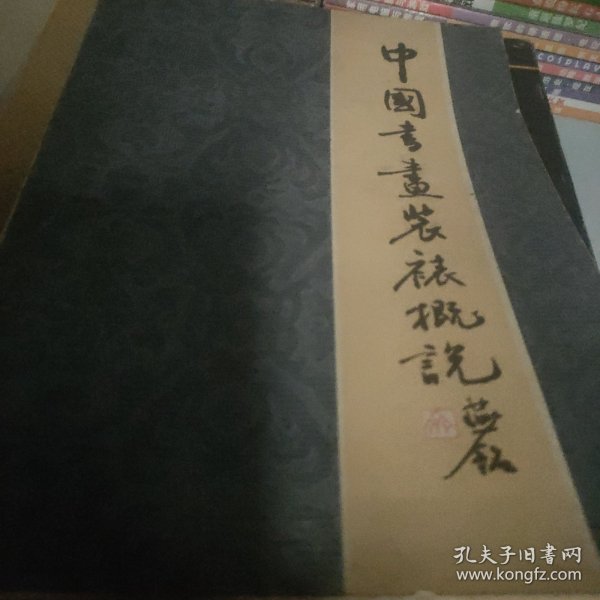 中國书畫装裱概説
孔夫子旧書网
www.kongfz.com